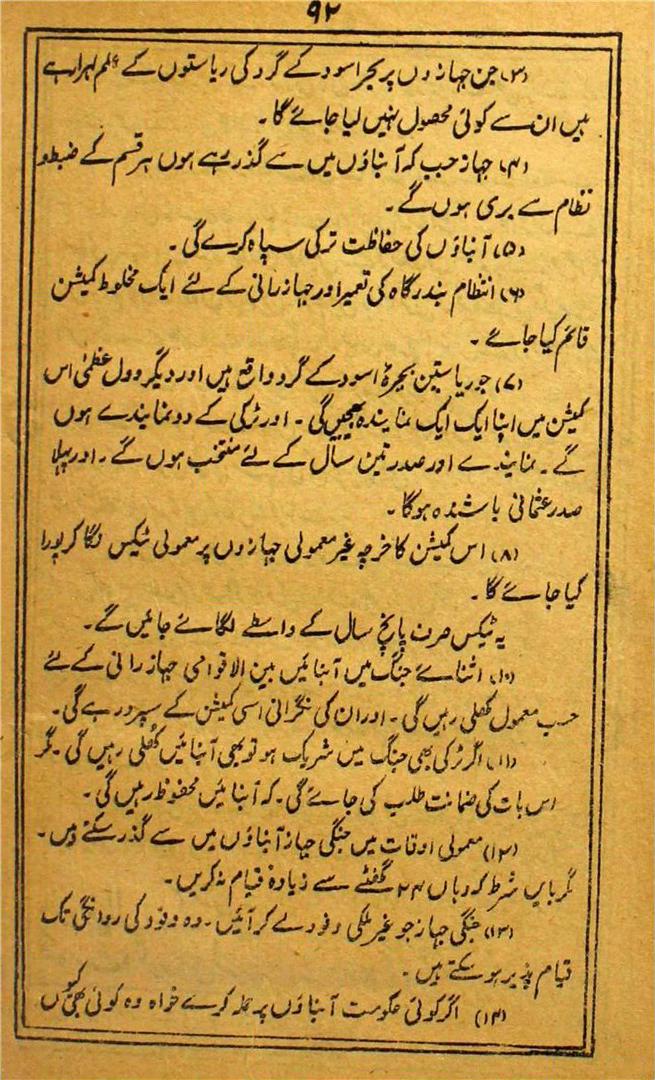 ۹۲
(۳) جن جہازوں پر بحر اسود کے گرد کی ریاستوں کے علم لہرا رہے
ہیں ان سے کوئی محصول نہیں لیا جائے گا۔
(۴) جہاز جب کہ آبناؤں میں سے گذر رہے ہوں ہر قسم کے ضبط و
نظام سے بری ہوں گے۔
(۵) آبناؤں کی حفاظت ترکی سپاہ کرے گی۔
(۶) انتظام بندرگاہ کی تعمیر اور جہاز رانی کے لئے ایک مخلوط کمیشن
قائم کیا جائے۔
(۷) جو ریاستیں بحیرۂ اسود کے گرد واقع ہیں اور دیگر دول عظمیٰ اس
کمیشن میں اپنا ایک ایک نمایندہ بھیجیں گی۔ اور ٹرکی کے دو نمایندے ہوں
گے۔ نمایندے اور صدر تین سال کے لئے منتخب ہوں گے۔ اور پہلا
صدر عثمانی باشندہ ہوگا۔
(۸) اس کمیشن کا خرچہ غیر معمولی جہازوں پر معمولی ٹیکس لگا کر پورا
کیا جائے گا۔
یہ ٹیکس صرف پانچ سال کے واسطے لگائے جائیں گے۔
(۱۰) اثنائے جنگ میں آبنائیں بین الاقوامی جہاز رانی کے لئے
حسب معمول کھلی رہیں گی۔ اور ان کی نگرانی اسی کمیشن کے سپرد رہے گی۔
(۱۱) اگر ٹرکی بھی جنگ میں شریک ہو تو بھی آبنائیں کھلی رہیں گی۔ مگر
اس بات کی ضمانت طلب کی جائے گی۔ کہ آبنائیں محفوظ رہیں گی۔
(۱۲) معمولی اوقات میں جنگی جہاز آبناؤں میں سے گذر سکتے ہیں۔
مگر بایں شرط کہ وہاں ۲۴ گھنٹے سے زیادہ قیام نہ کریں۔
(۱۳) جنگی جہاز جو غیر ملکی وفود لے کر آئیں۔ وہ وفود کی روانگی تک
قیام پذیر ہو سکتے ہیں۔
(۱۴) اگر کوئی حکومت آبناؤں پر حملہ کرے خواہ وہ کوئی بھی کیوں